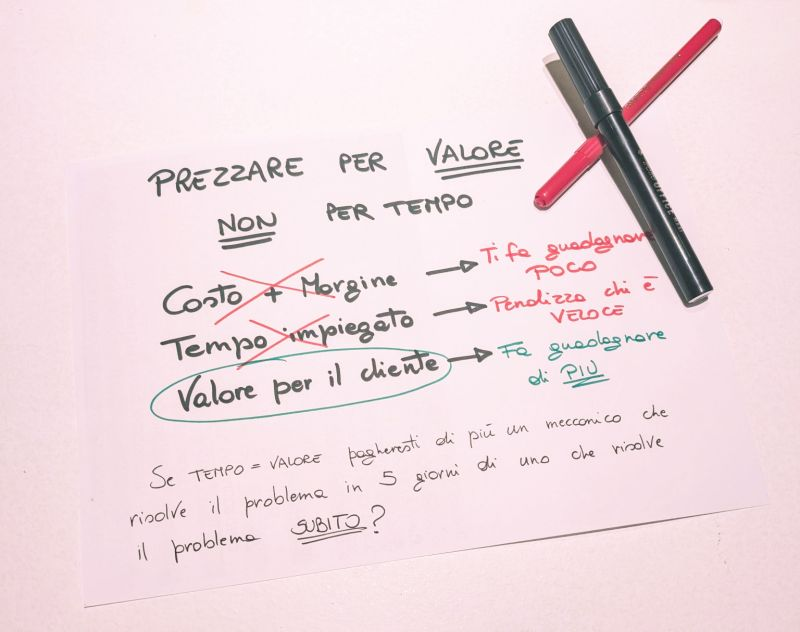 PREZZARE PER VALORE
NON PER TEMPO
Costo + Margine → Ti fa guadagnare
POCO
Tempo impiegato → Penalizza chi è
VELOCE
Valore per il cliente → Fa guadagnare
di PIÙ
Se TEMPO = VALORE pagheresti di più un meccanico che
risolve il problema in 5 giorni di uno che risolve
il problema SUBITO?
OFFICE